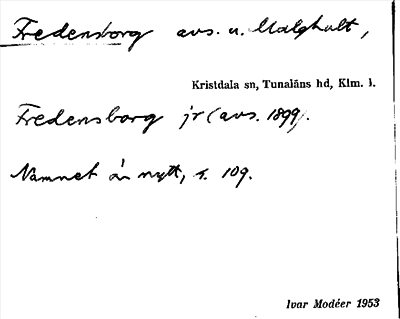 Fredensborg avs. u. Malghult,
Kristdala sn, Tunaläns hd, Klm. l.
Fredensborg jr (avs. 1899).
Namnet är nytt, s. 109.
Ivar Modéer 1953